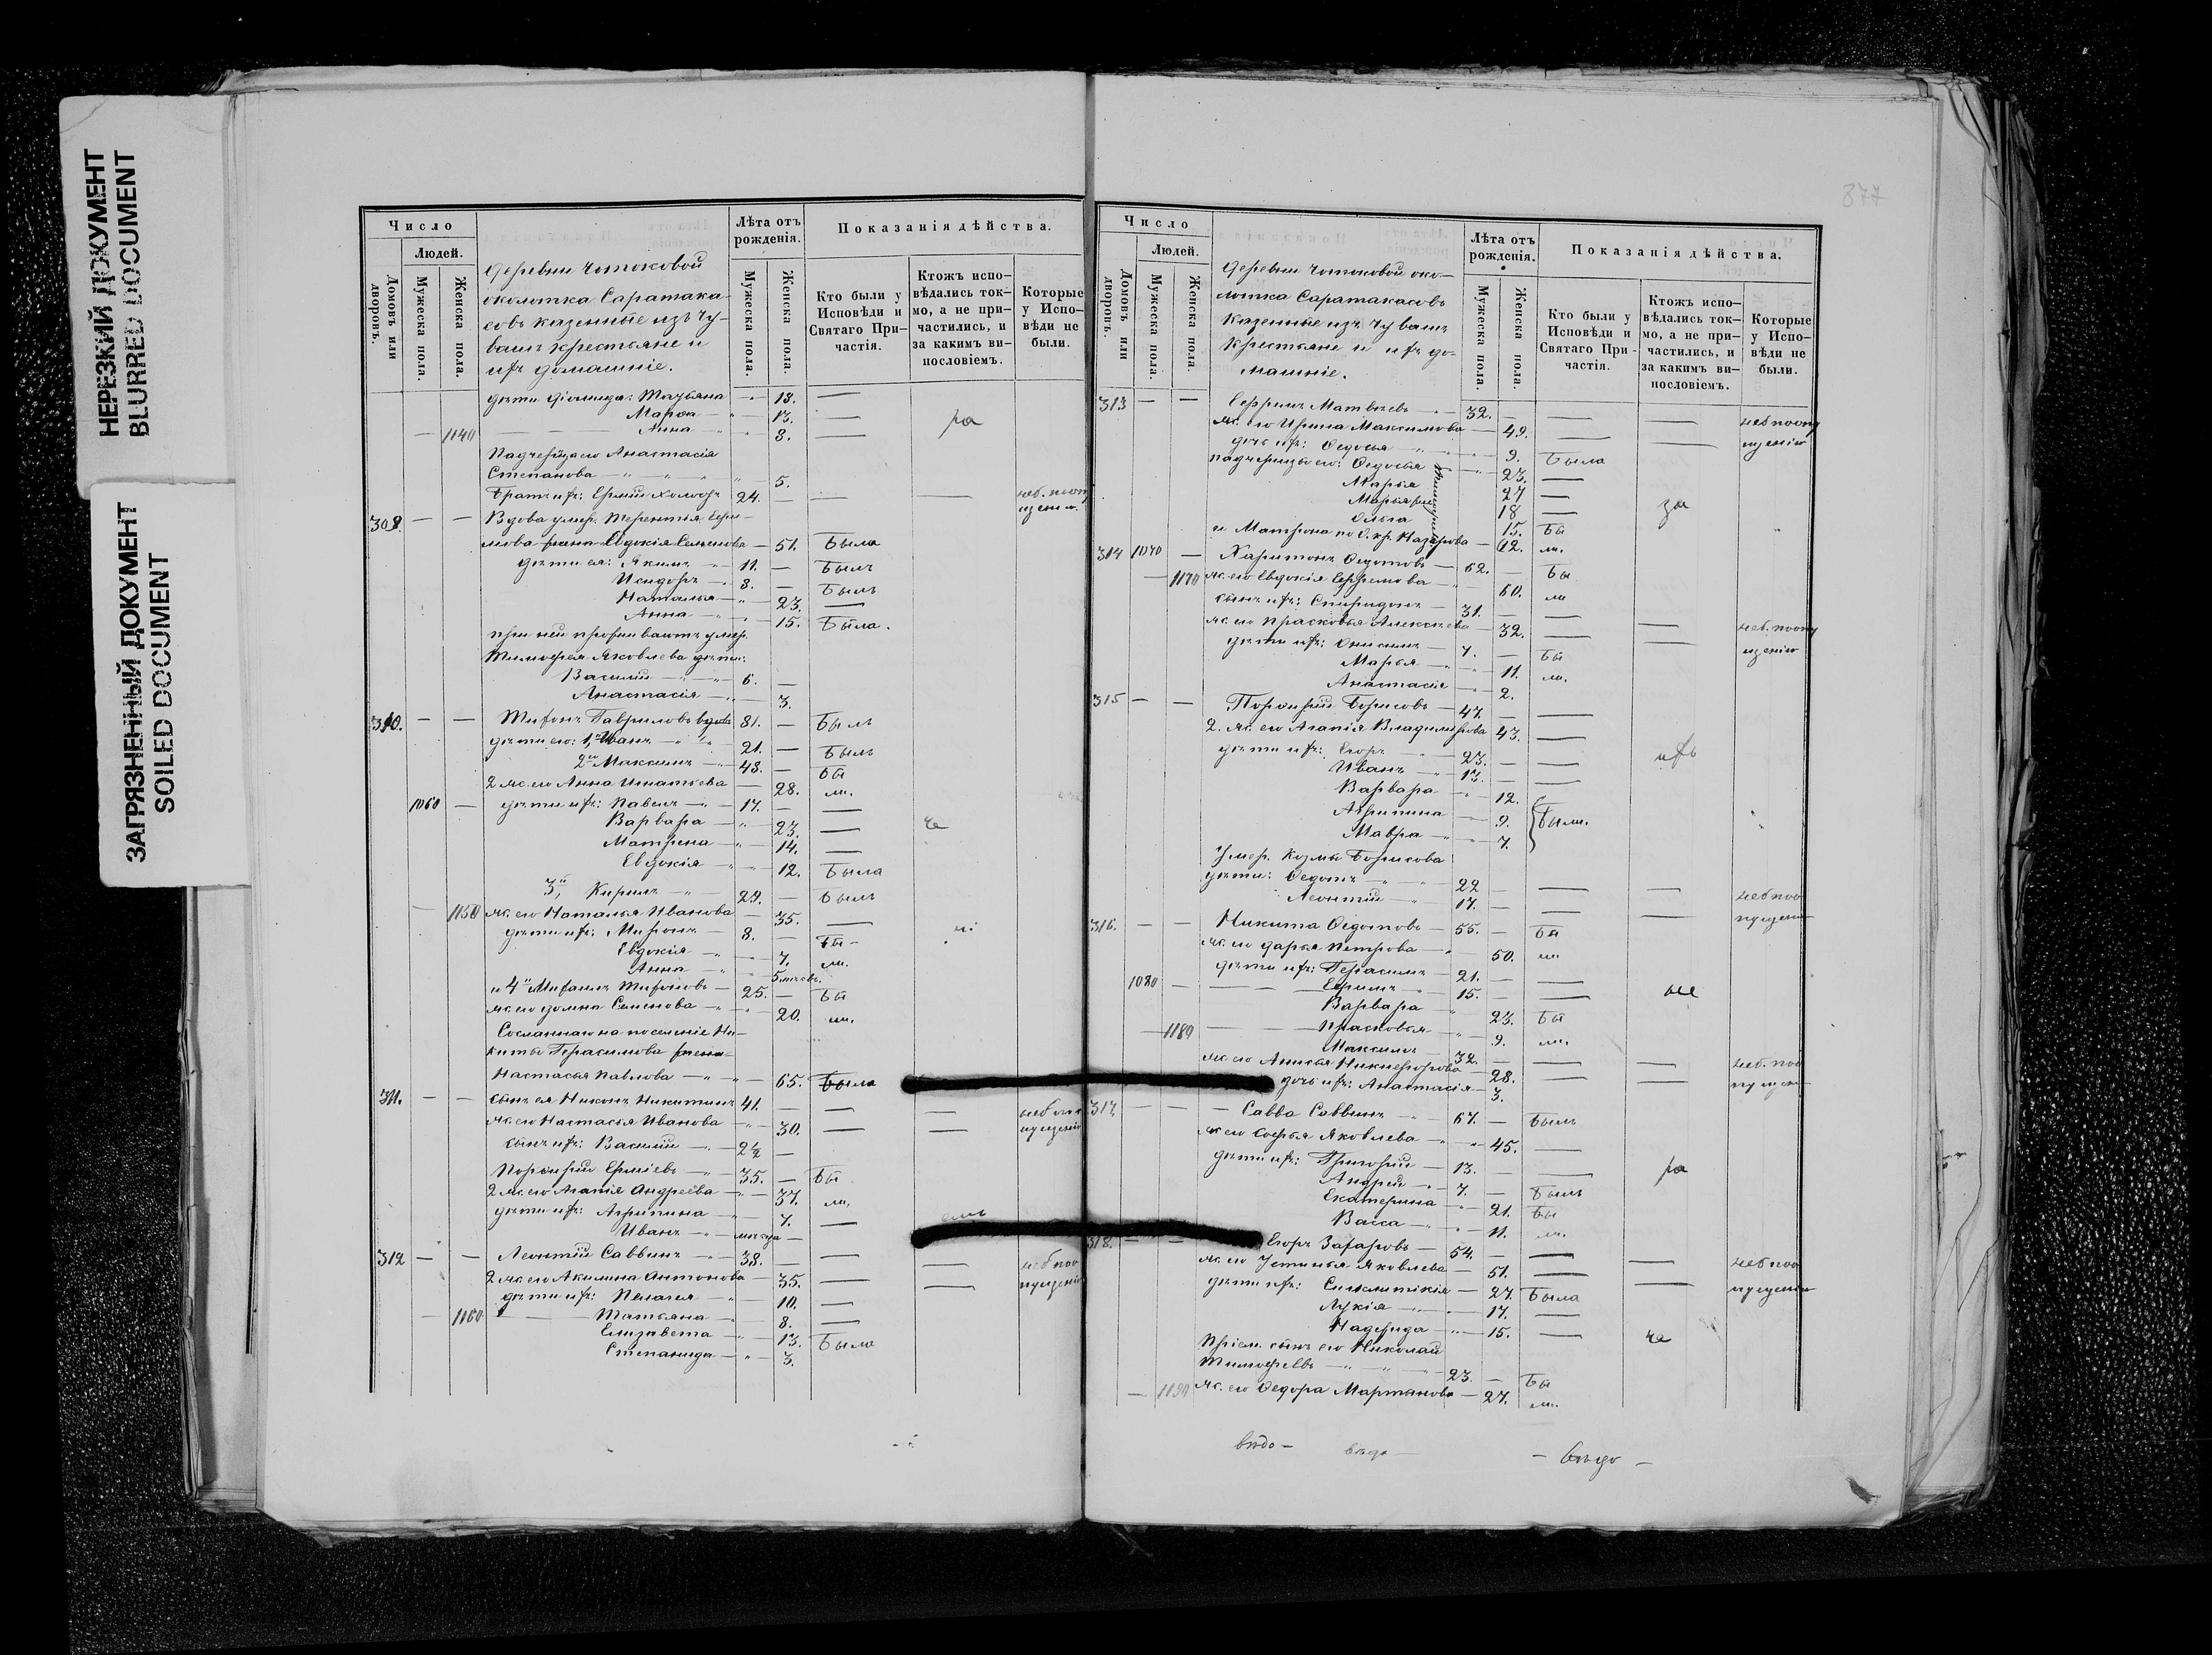 НЕРЕЗКИЙ ДОКУМЕНТ
BLURRED DOCUMENT
ЗАГРЯЗНЕННЫЙ ДОКУМЕНТ
SOILED DOCUMENT
Число
Людей.
Домовъ или дворовъ.
Мужеска пола.
Женска пола.
Деревни Чотоковой
околотка Саратака-
совъ казенные изъ Чу-
вашъ крестьяне и
ихъ домашніе.
Лѣта отъ рожденія.
Мужеска пола.
Женска пола.
Показанія дѣйства.
Кто были у Исповѣди и Святаго При-частія.
Ктожъ испо-вѣдались ток-мо, а не при-частились, и за какимъ ви-пословіемъ.
Которые у Испо-вѣди не были.
дѣти Татьяна — 18. —
Марѳа — 13. — ра
— 1140 Анна — 8. —
Падчерица его Анастасія
Степанова — 5.
Братъ ихъ: 24. — — —
— — Вдова умер. Терентія Ефи-
мова Евдокія Семенова — 51. Была
дѣти ея: Якимъ 11. — Былъ
Исидоръ — 8. — Былъ
Наталья — 23. —
Анна — 15. Была.
при ней проживаютъ умер.
Тимоѳея Яковлева дѣти:
Василій — 6. —
Анастасія — 3.
310. — — Гавриловъ вдовъ 81. — Былъ
дѣти его: 1, Иванъ — 21. — Былъ
2й Максимъ — 48. — Бы
2 ж. его Анна Игнатьева — 28. ли.
1060 — дѣти ихъ: Павелъ — 17. —
Варвара — 23. — че
Матрена — 14. —
Евдокія — 12. Была
3й, Кирилъ — 29. — Былъ
— 1150 ж. его Наталья Иванова — 35. —
дѣти ихъ: Миронъ — 8. — Бы-
Евдокія — 7. ли.
Анна — 5 мѣсяцовъ.
и 4й Михаилъ — 25. — Бы
ж. его Домна Семенова — 20. ли.
Сосланнаго на поселеніе Ни-
киты Герасимова жена
Настасья Павлова — 65. Была
311. — — сынъ ея Никонъ Никитинъ 41. — — —
ж. его Настасья Иванова — 30. — —
сынъ ихъ: Василій — 2½ —
Порфирій Ерміевъ — 35. — Бы
2 ж. его Агапія Андреева — 37. ли.
дѣти ихъ: Агрипина — 7. —
Иванъ —
312 — — Леонтій Саввинъ — 38. — — —
2 ж. его Акилина Антонова — 35. — —
дѣти ихъ: Пелагея — 10. —
— 1160 Татьяна — 8. —
Елизавета — 13. Была
Степанида — 3.
877
Число
Людей.
Домовъ или дворовъ.
Мужеска пола.
Женска пола.
Деревни Чотоковой око-
лотка Саратакасовъ
казенные изъ Чувашъ
крестьяне и ихъ до-
машніе.
Лѣта отъ рожденія.
Мужеска пола.
Женска пола.
Показанія дѣйства.
Кто были у Исповѣди и Святаго При-частія.
Ктожъ испо-вѣдались ток-мо, а не при-частились, и за какимъ ви-пословіемъ.
Которые у Испо-вѣди не были.
313 — — Ефримъ Матвѣевъ — 32. — — —
ж. его Ирина Максимова — 49. — —
дочь ихъ: Ѳедосья — 9. Была
падчерицы его: Ѳедосья — 23. —
Марья 27 —
Марья 18 — за
Ольга 15. Бы
и Матрона по В. кр. Назарова — 62. ли.
314 1070 — Харитонъ Ѳедотовъ — 62. — Бы
— 1170 ж. его Евдокія Ефремова — 60. ли
сынъ ихъ: Спиридонъ — 31. —
ж. его Прасковья Алексѣева — 32. — —
дѣти ихъ: Онисимъ — 7. — Бы
Марья — 11. ли.
Анастасія — 2.
315 — — Порфирій Борисовъ — 47. — —
2. ж. его Агапія Владимірова 43. —
дѣти ихъ: Егоръ — 23. — — ихъ
Иванъ — 13. — —
Варвара — 12.
Агрипина — 9. Были.
Мавра — 7.
Умер. Козмы Борисова
дѣти: Ѳедотъ — 22 — — —
Леонтій — 17. — — —
316. — — Никита Ѳедотовъ — 55. — Бы
ж. его Дарья Петрова — 50. ли
дѣти ихъ: Герасимъ — 21. — —
1080 — Ефимъ — 15. — — ые
Варвара — 23. Бы
— 1189 Прасковья — 9. ли.
Максимъ — 32. — — —
ж. его Анисья Никифорова — 28. — —
дочь ихъ: Анастасія — 3.
317. — — Савва Саввинъ — 67. — Былъ
ж. его Софья Яковлева — 45. —
дѣти ихъ: Григорій — 13. — — ра
Андрей — 7. — Былъ
Екатерина — 21. Бы
Васса — 11. ли.
318. — — Егоръ Захаровъ — 54. — — —
ж. его Устинья Яковлева — 51. — —
дѣти ихъ: Синклитикія — 27. Была
Лукія — 17. —
Надежда — 15. — че
Пріем. сынъ его Николай
Тимоѳеевъ — 23. — Бы
— 1190 ж. его Ѳедора Мартынова — 27. ли.
вѣдо — вѣдо — — вѣдо —